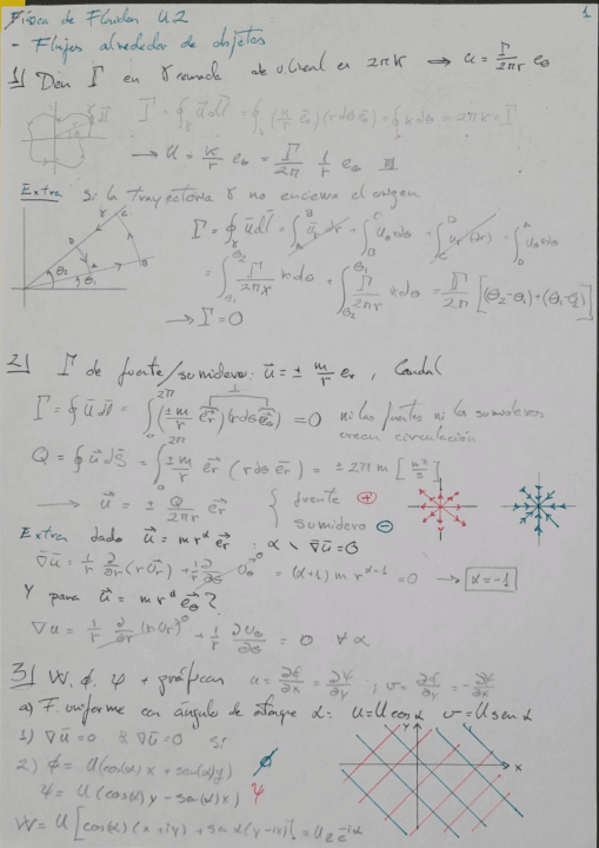 Física de Fluidos U2
1
- Flujos alrededor de objetos
1) Dem Γ en γ cerrada de v. lineal es 2πK → u = Γ/2πr e_θ
Γ = ∮_γ ū dl̄ = ∮_γ (K/r ē_θ)(r dθ ē_θ) = ∮ K dθ = 2πK = Γ
→ u = K/r e_θ = Γ/2π 1/r e_θ
Extra Si la trayectoria γ no encierra el origen
Γ = ∮_γ ū dl̄ = ∫_A^B u_r dr + ∫_B^C u_θ r dθ + ∫_C^D u_r (dr) + ∫_D^A u_θ r dθ
= ∫_θ₁^θ₂ Γ/2πr r dθ + ∫_θ₂^θ₁ Γ/2πr r dθ = Γ/2π [(θ₂-θ₁)+(θ₁-θ₂)]
→ Γ = 0
2) Γ de fuente/sumidero: ū = ± m/r e_r , Caudal
Γ = ∮ ū dl̄ = ∫_0^2π (±m/r e_r)(r dθ e_θ) = 0 ni las fuentes ni los sumideros
crean circulación
Q = ∮ ū dS̄ = ∫_0^2π ±m/r e_r (r dθ e_r) = ± 2πm [m²/s]
→ ū = ± Q/2πr e_r { fuente ⊕
sumidero ⊖
Extra dado ū = m r^α e_r : α \ ∇̄ū = 0
∇̄ū = 1/r ∂/∂r (r u_r) + 1/r ∂/∂θ u_θ = (α+1) m r^(α-1) = 0 → α = -1
Y para ū = m r^α e_θ ?
∇u = 1/r ∂/∂r (r u_r) + 1/r ∂u_θ/∂θ = 0 ∀α
3) W, φ, ψ + gráficas u = ∂φ/∂x = ∂ψ/∂y ; v = ∂φ/∂y = -∂ψ/∂x
a) F. uniforme con ángulo de ataque α: u = U cos α v = U sen α
1) ∇ū = 0 & ∇ū = 0 Sí
2) φ = U(cos(α) x + sen(α) y) φ
ψ = U (cos(α) y - sen(α) x) ψ
W = U [cos(α)(x+iy) + sen α (y-ix)] = U z e^(-iα)